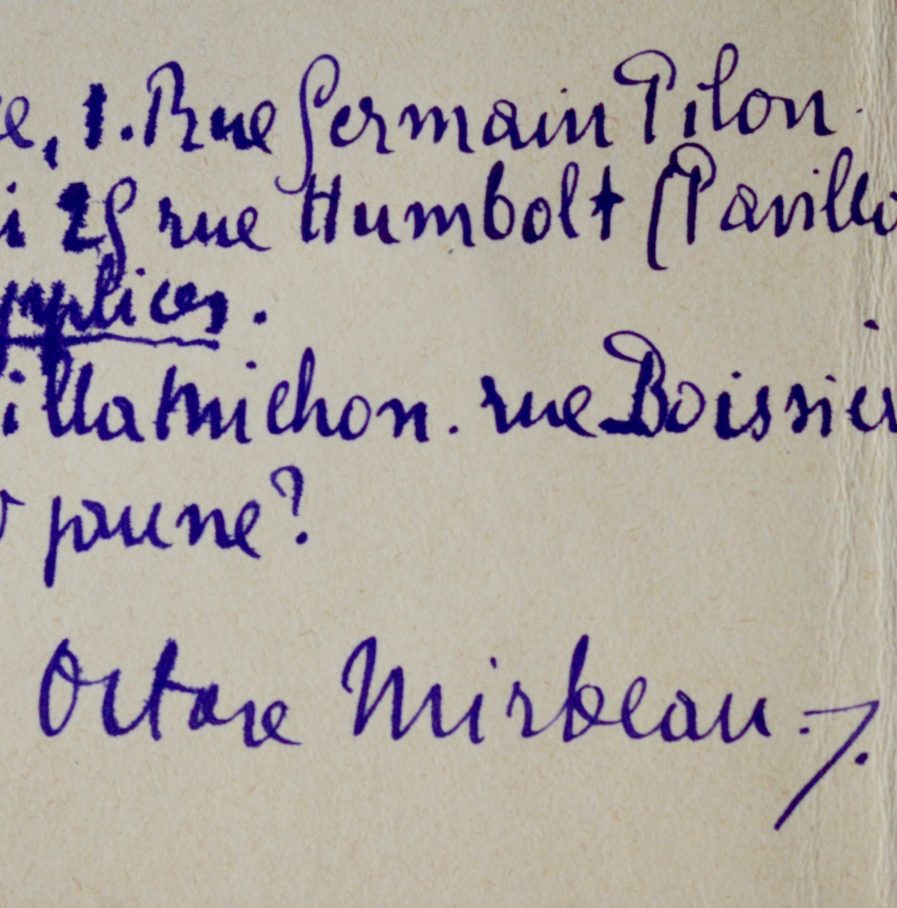 e, 1. Rue Germain Pilon.
i 29 rue Humbolt (Pavillo
mplices.
illa Michon. rue Boissièr
jaune?
Octave Mirbeau.